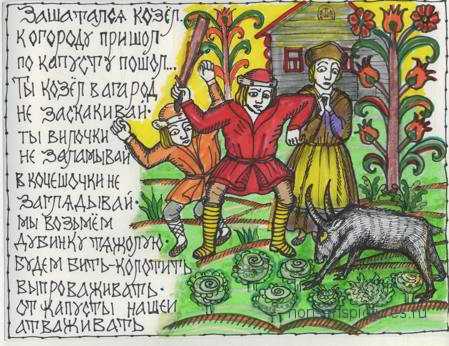 Зашатался козёл
К огороду пришол
по капусту пошол...
Ты козёл в агарод
не заскакивай.
ты вилочки
не заламывай
в кочешочки не
заглядывай.
мы возьмём
дубинку тяжолую.
будем бить-колотить
выпроваживать.
от капусты нашей
атваживать